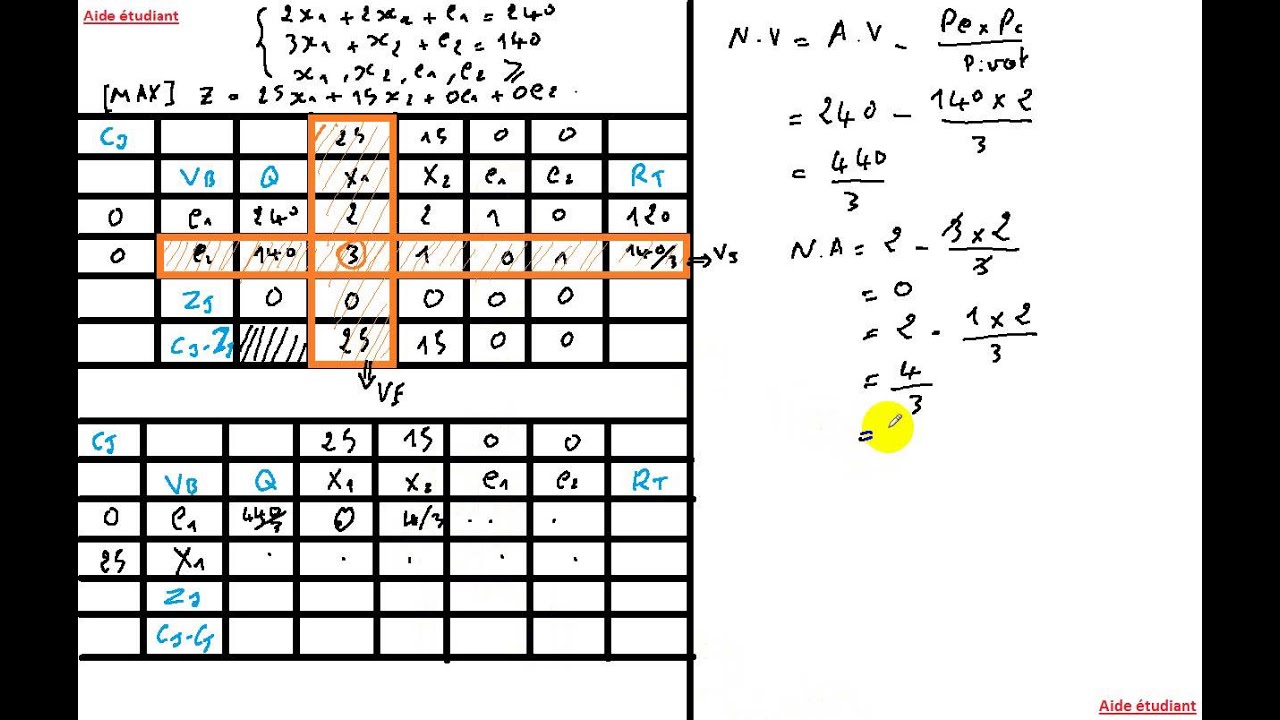 Aide étudiant
2x₁ + 2x₂ + e₁ = 240
3x₁ + x₂ + e₂ = 140
x₁, x₂, e₁, e₂ ≥
[MAX] Z = 25x₁ + 15x₂ + 0e₁ + 0e₂
CJ 25 15 0 0
VB Q X₁ X₂ e₁ e₂ RT
0 e₁ 240 2 2 1 0 120
0 e₂ 140 3 1 0 1 140/3 ⇒ VS
ZJ 0 0 0 0 0
CJ-ZJ 25 15 0 0
⇓ VE
CJ 25 15 0 0
VB Q X₁ X₂ e₁ e₂ RT
0 e₁ 440/3 0 4/3 . . .
25 X₁ . . . . .
ZJ
CJ-CJ
N.V = A.V - Pe x Pc / Pivot
= 240 - 140 x 2 / 3
= 440 / 3
N.A = 2 - 3 x 2 / 3
= 0
= 2 - 1 x 2 / 3
= 4 / 3
=
Aide étudiant